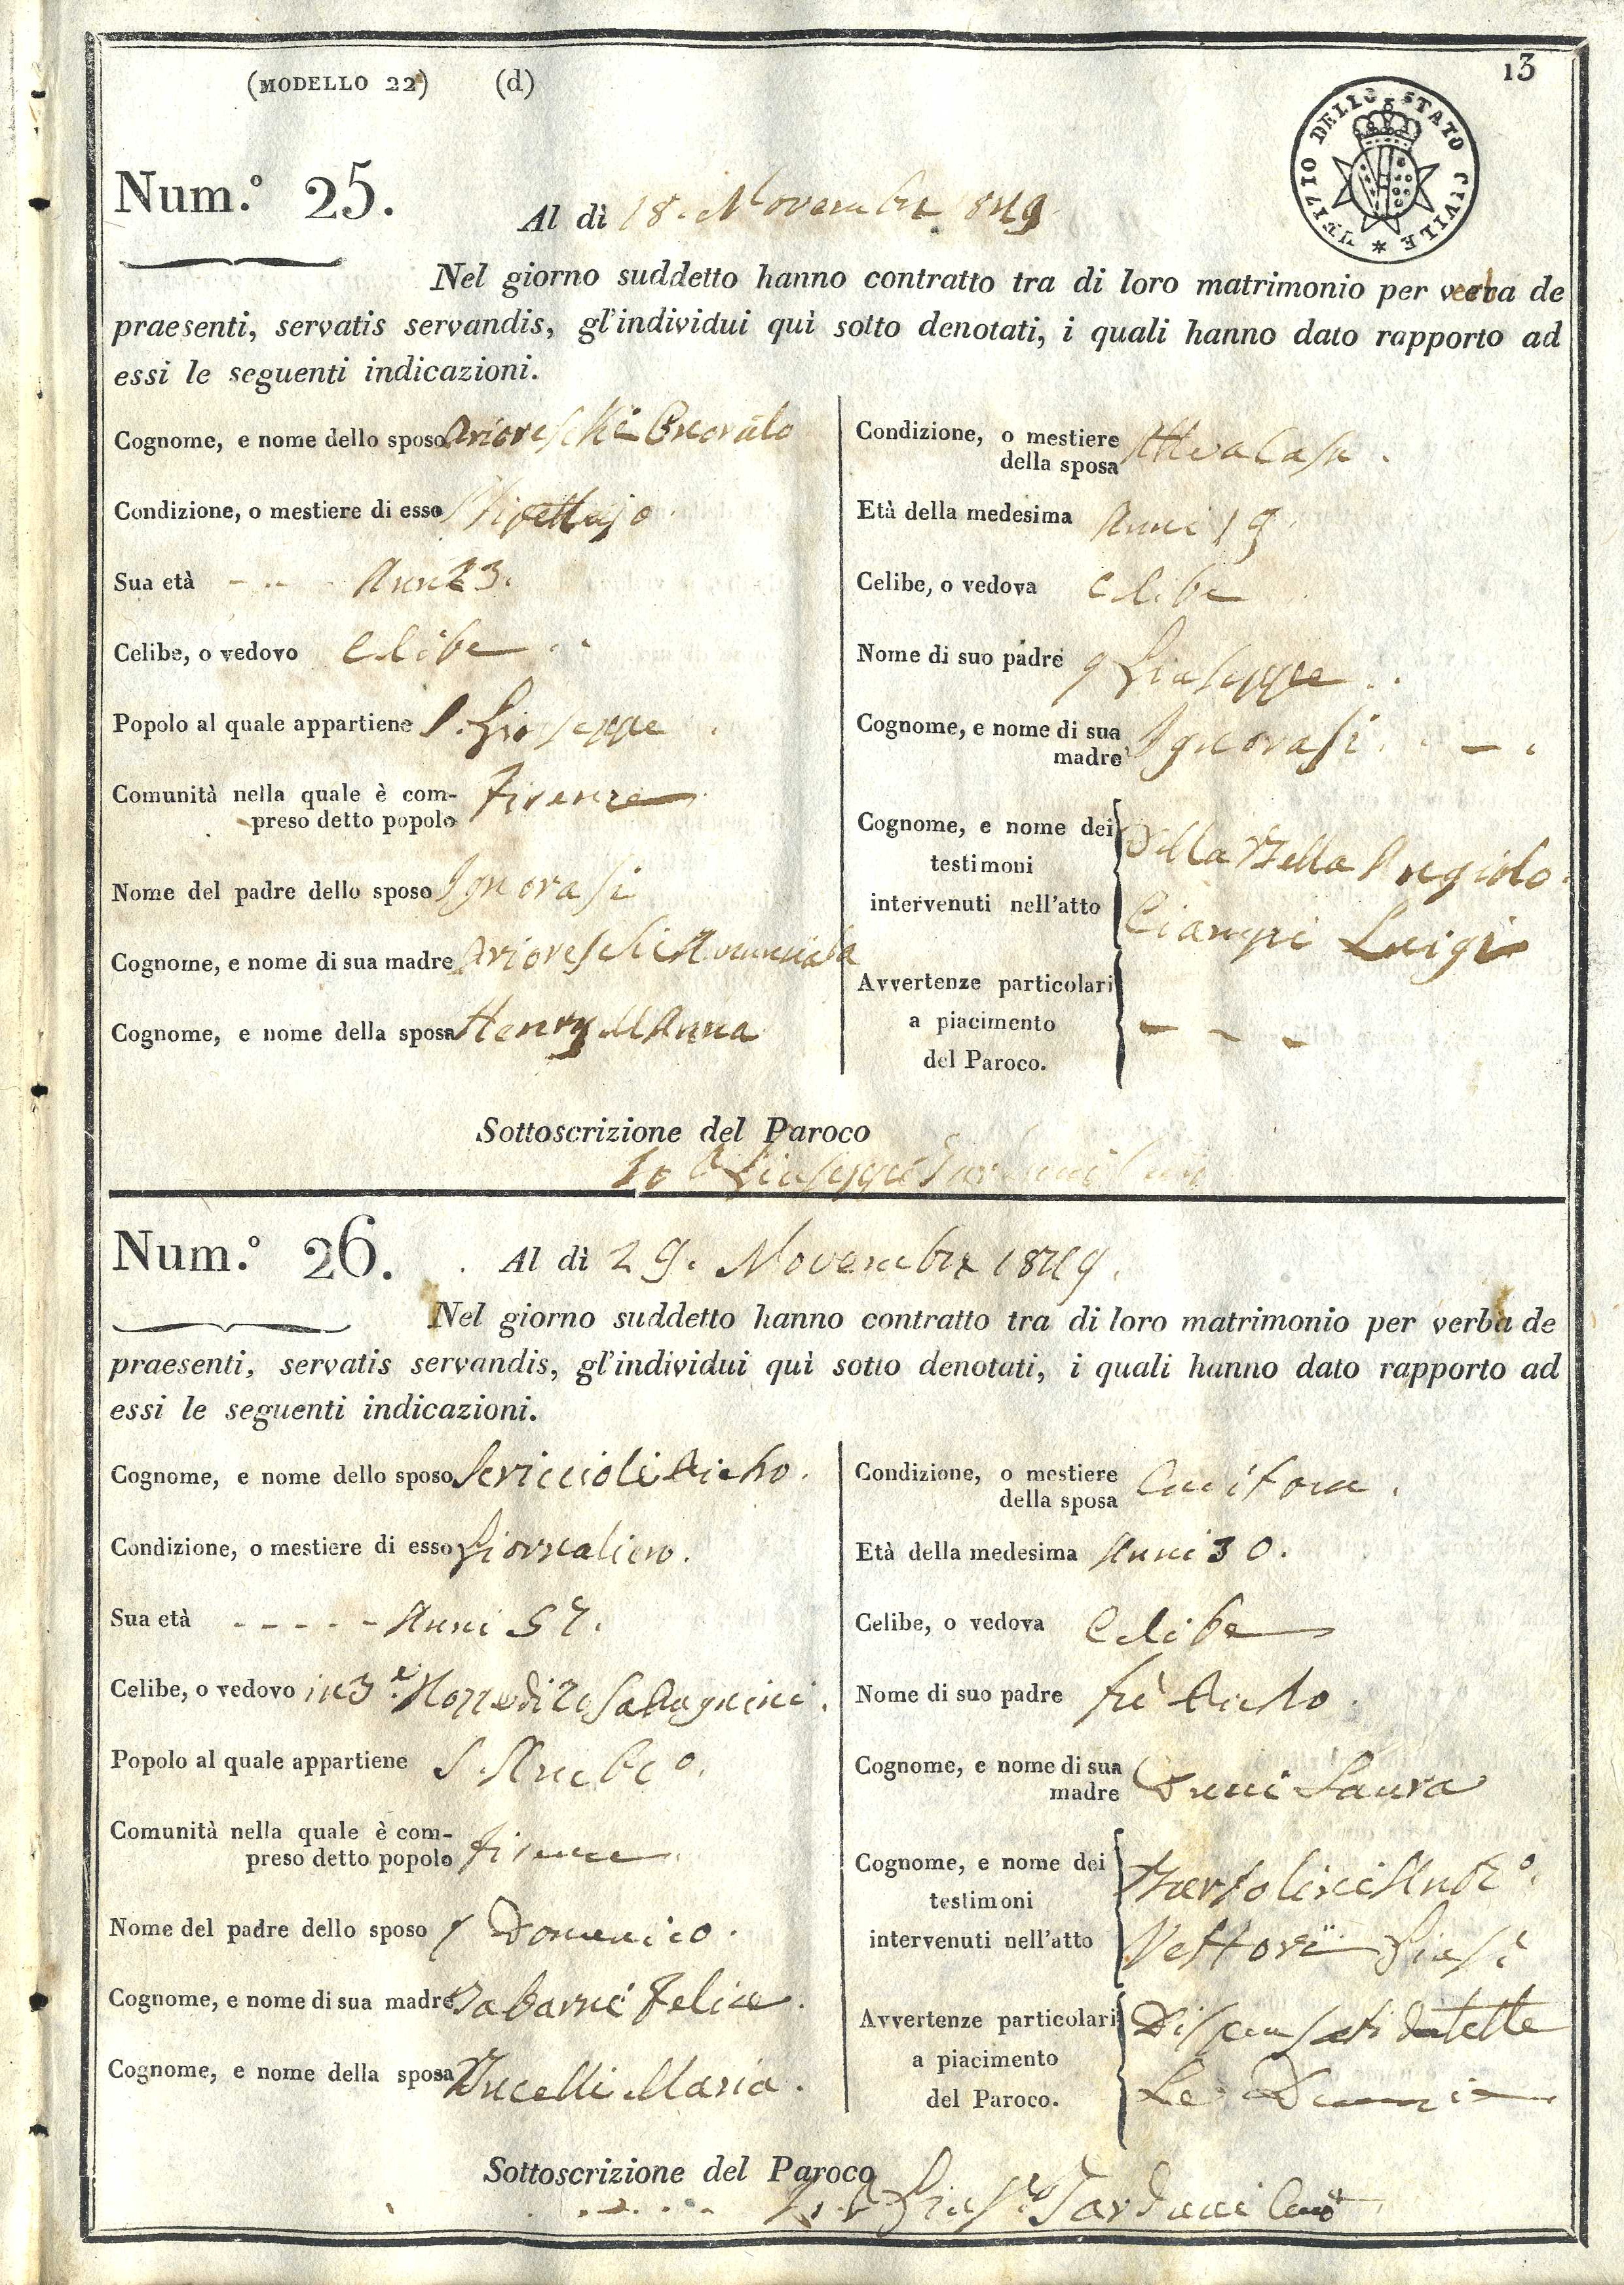 (MODELLO 22) (d)
13
UFIZIO DELLO STATO CIVILE *
Num.° 25.
Al dì 18. Novembre 1849
Nel giorno suddetto hanno contratto tra di loro matrimonio per verba de
praesenti, servatis servandis, gl'individui quì sotto denotati, i quali hanno dato rapporto ad
essi le seguenti indicazioni.
Cognome, e nome dello sposo
Condizione, o mestiere di esso
Sua età - - - Anni 23.
Celibe, o vedovo Celibe
Popolo al quale appartiene S. Giuseppe
Comunità nella quale è com-
preso detto popolo Firenze
Nome del padre dello sposo Ignorasi
Cognome, e nome di sua madre
Cognome, e nome della sposa Henry M Anna
Condizione, o mestiere
della sposa Att. a Casa.
Età della medesima Anni 19.
Celibe, o vedova Celibe
Nome di suo padre Giuseppe
Cognome, e nome di sua
madre Ignorasi
Cognome, e nome dei
testimoni
intervenuti nell'atto
Della Bella
Ciampi Luigi
Avvertenze particolari
a piacimento
del Paroco.
- - -
Sottoscrizione del Paroco
Io Giuseppe Tarduci
Num.° 26.
Al dì 29. Novembre 1849.
Nel giorno suddetto hanno contratto tra di loro matrimonio per verba de
praesenti, servatis servandis, gl'individui quì sotto denotati, i quali hanno dato rapporto ad
essi le seguenti indicazioni.
Cognome, e nome dello sposo Scriccioli
Condizione, o mestiere di esso Giornaliero.
Sua età - - - - - Anni 57.
Celibe, o vedovo in 3e Nozze di Rosa
Popolo al quale appartiene S. Amb.o
Comunità nella quale è com-
preso detto popolo Firenze
Nome del padre dello sposo Domenico.
Cognome, e nome di sua madre Felice.
Cognome, e nome della sposa Maria.
Condizione, o mestiere
della sposa Cucitora.
Età della medesima Anni 30.
Celibe, o vedova Celibe
Nome di suo padre
Cognome, e nome di sua
madre Laura
Cognome, e nome dei
testimoni
intervenuti nell'atto
Bartolini Ant.o
Vettori Gius.e
Avvertenze particolari
a piacimento
del Paroco.
Dispensati da tutte
Le Denunzie
Sottoscrizione del Paroco
Gius.e Tarduci Curato